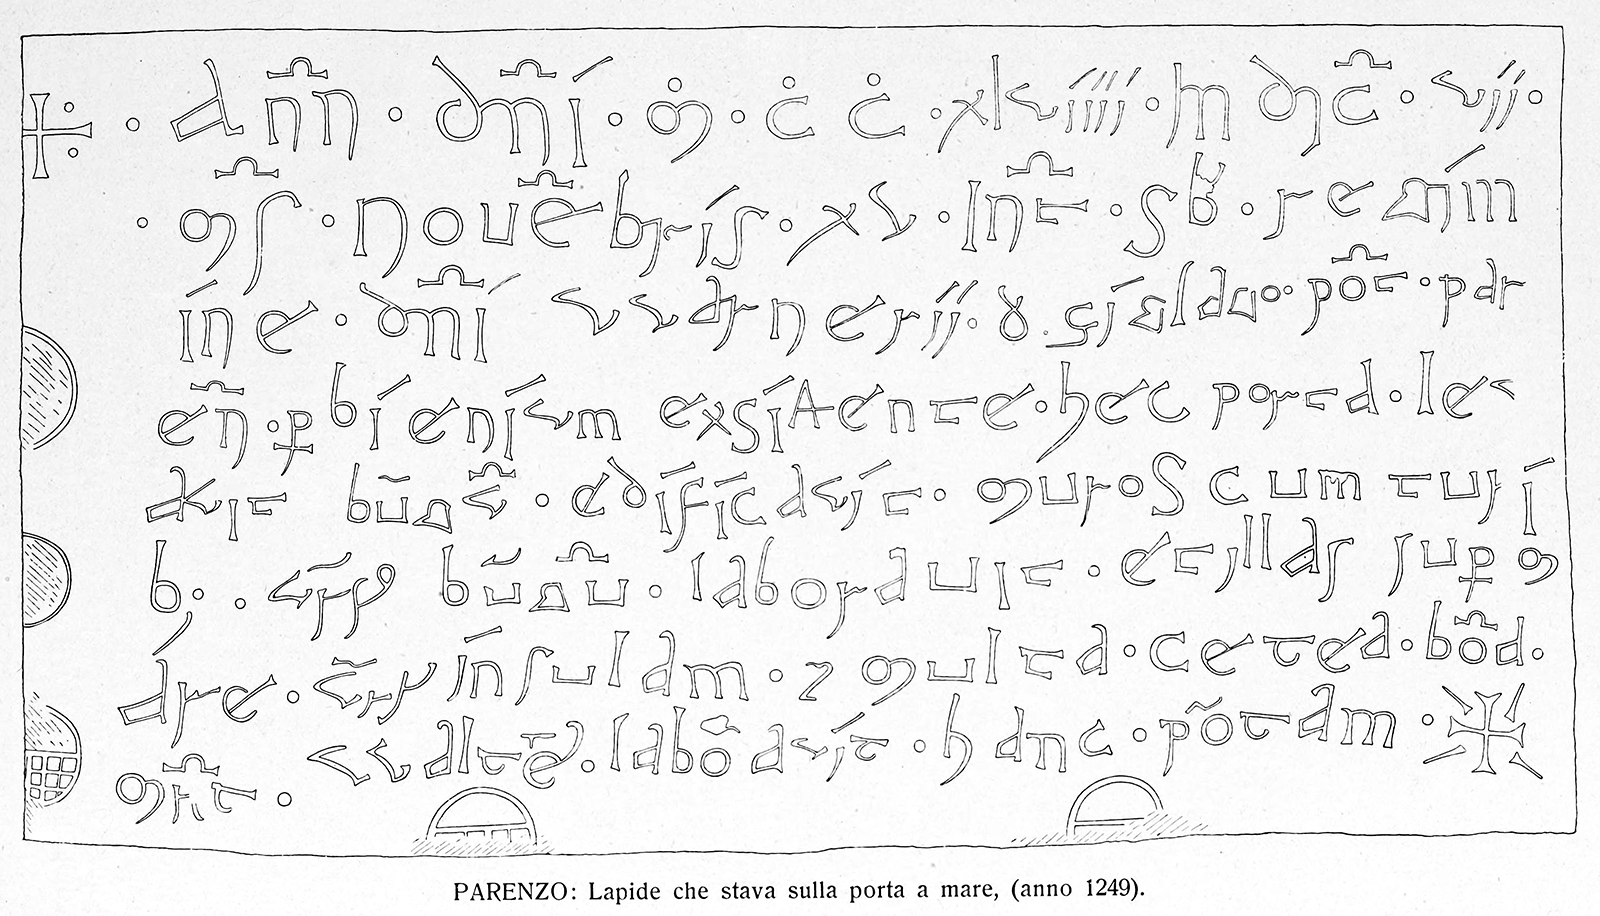 ✠ · Ann̄ · dn̄i · m̊ · ċ ċ · xlviiii · In dn̄ē · vii ·
· ms · novēbris · xv · Int̄ · Sb · regim
ine · dn̄i vvarnerii · d · gisaldo · pōt · par
en̄ · p bienium exsiAente · hec porta · le
avit būgv̄ · edificavit · muros cum turi
b; · būgū · laboravit · et illas sup m
are · insulam · z multa · cetea · bōa ·
mr̄t · vvaltē · labōavit · hanc · pōtam · ✠
PARENZO: Lapide che stava sulla porta a mare, (anno 1249).